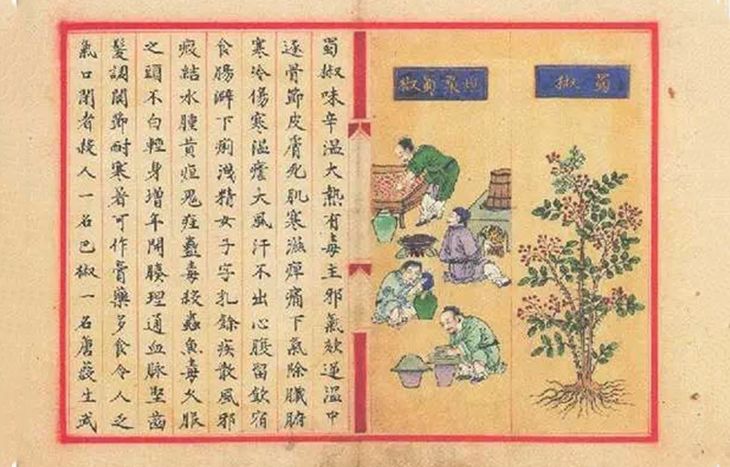 蜀椒
炮製蜀椒
蜀椒味辛溫大熱有毒主邪氣欬逆溫中
逐骨節皮膚死肌寒濕痺痛下氣除臟腑
寒冷傷寒溫瘧大風汗不出心腹留飲宿
食腸澼下痢洩精女子字乳餘疾散風邪
瘕結水腫黃疸鬼疰蠱毒殺蟲魚毒久服
之頭不白輕身增年開腠理通血脈堅齒
髮調關節耐寒暑可作膏藥多食令人乏
氣口閉者殺人一名巴椒一名唐藙生武